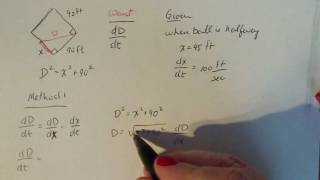 90ft
D
x
90ft
D² = x² + 90²
Want
dD/dt
Given
when ball is halfway
x = 45 ft
dx/dt = 100 ft/sec
Method 1
dD/dt = dD/dx · dx/dt
dD/dt =
D² = x² + 90²
D = √x² + 90²
dD/dx